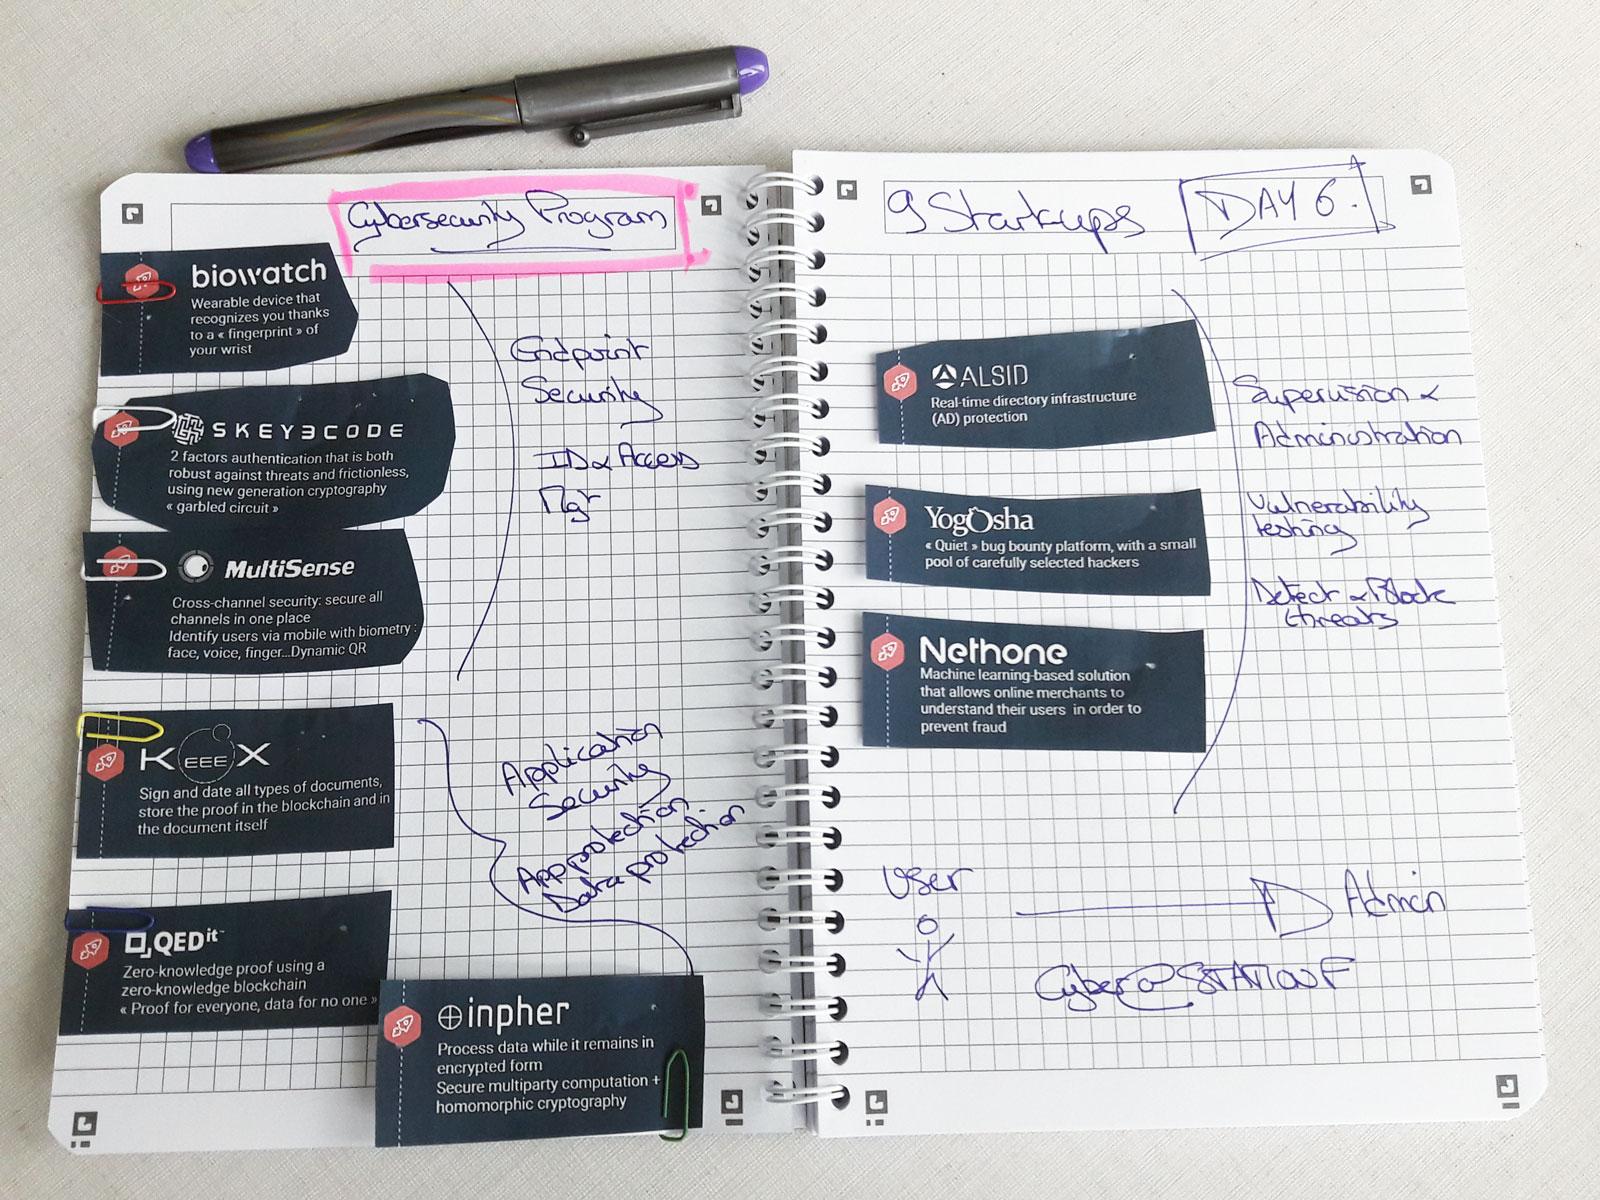 Cybersecurity Program
biowatch
Wearable device that
recognizes you thanks
to a « fingerprint » of
your wrist
SKEY3CODE
2 factors authentication that is both
robust against threats and frictionless,
using new generation cryptography
« garbled circuit »
MultiSense
Cross-channel security: secure all
channels in one place
Identify users via mobile with biometry :
face, voice, finger...Dynamic QR
Endpoint
Security
ID & Access
Mgr
KEEEX
Sign and date all types of documents,
store the proof in the blockchain and in
the document itself
QEDit
Zero-knowledge proof using a
zero-knowledge blockchain
« Proof for everyone, data for no one »
inpher
Process data while it remains in
encrypted form
Secure multiparty computation +
homomorphic cryptography
Application
Security
App protection.
Data protection
9 Startups
DAY 6.
ALSID
Real-time directory infrastructure
(AD) protection
YogOsha
« Quiet » bug bounty platform, with a small
pool of carefully selected hackers
Nethone
Machine learning-based solution
that allows online merchants to
understand their users in order to
prevent fraud
Supervision &
Administration
Vulnerability
testing
Detect & Block
threats
User
Admin
Cyber@STATION F